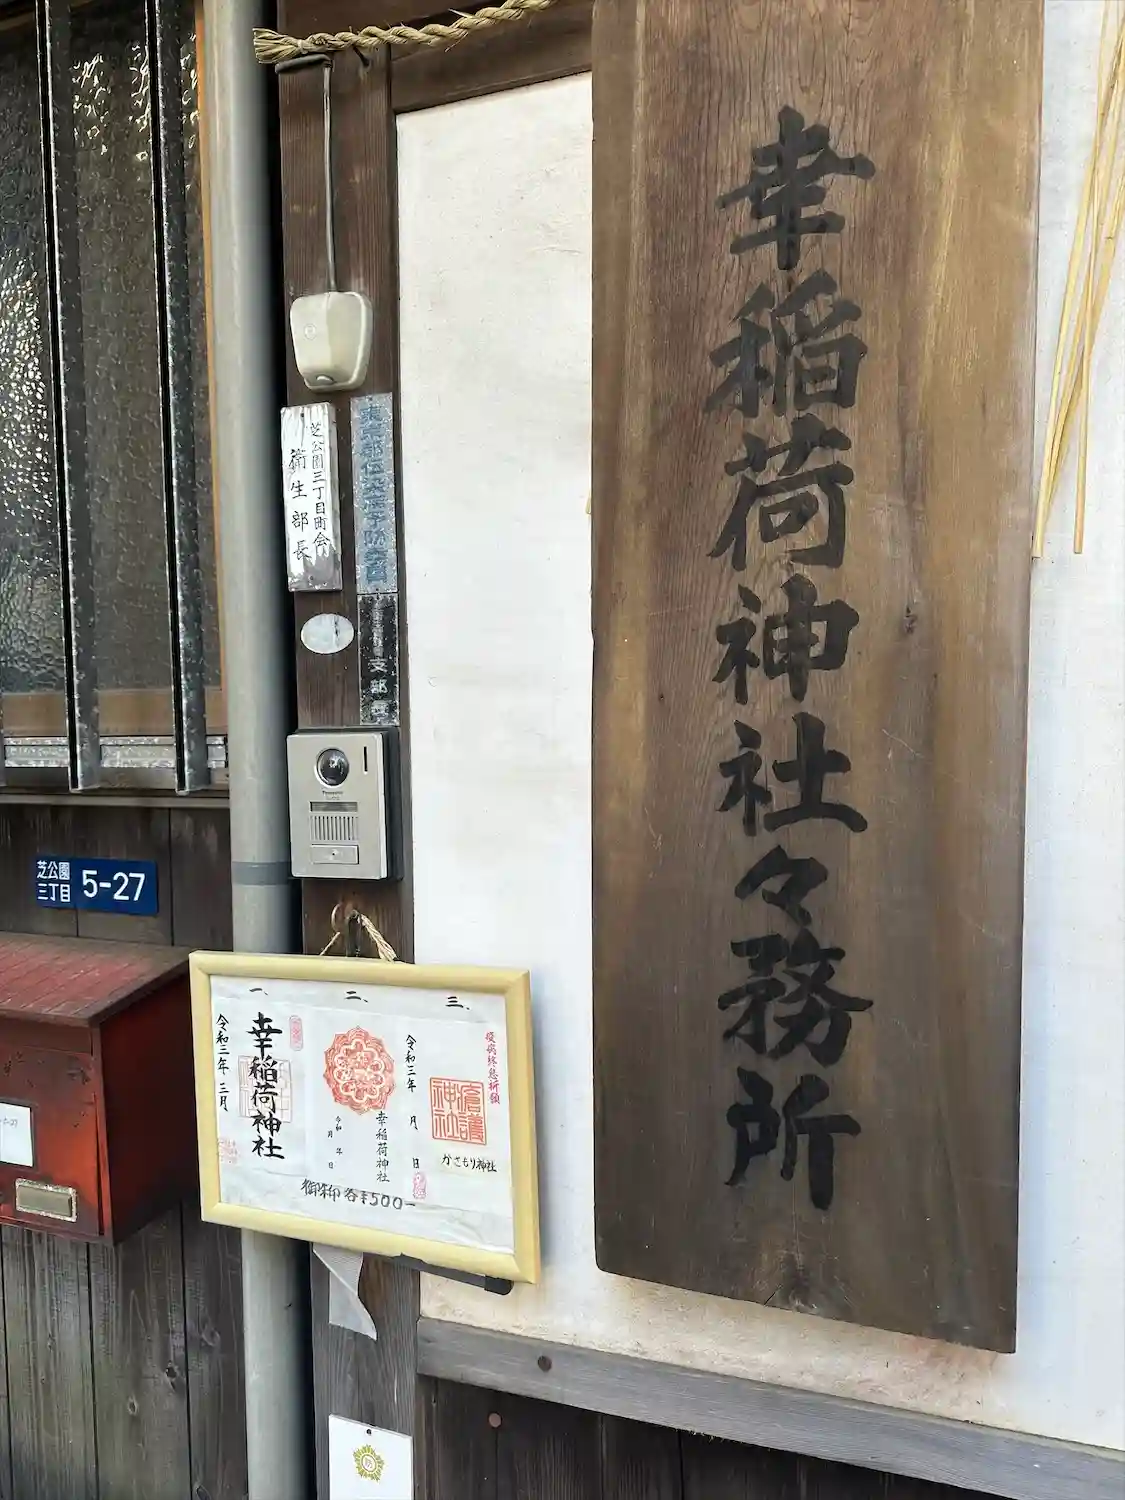 幸稲荷神社々務所
芝公園三丁目町会
衛生部長
支部
Panasonic
芝公園
三丁目
5-27
一、
二、
三、
令和三年 三月
幸稲荷神社
幸稲荷神社
令和 年
月 日
令和三年 月 日
疫病終息祈願
瘡護
神社
かさもり神社
御朱印 各¥500ー